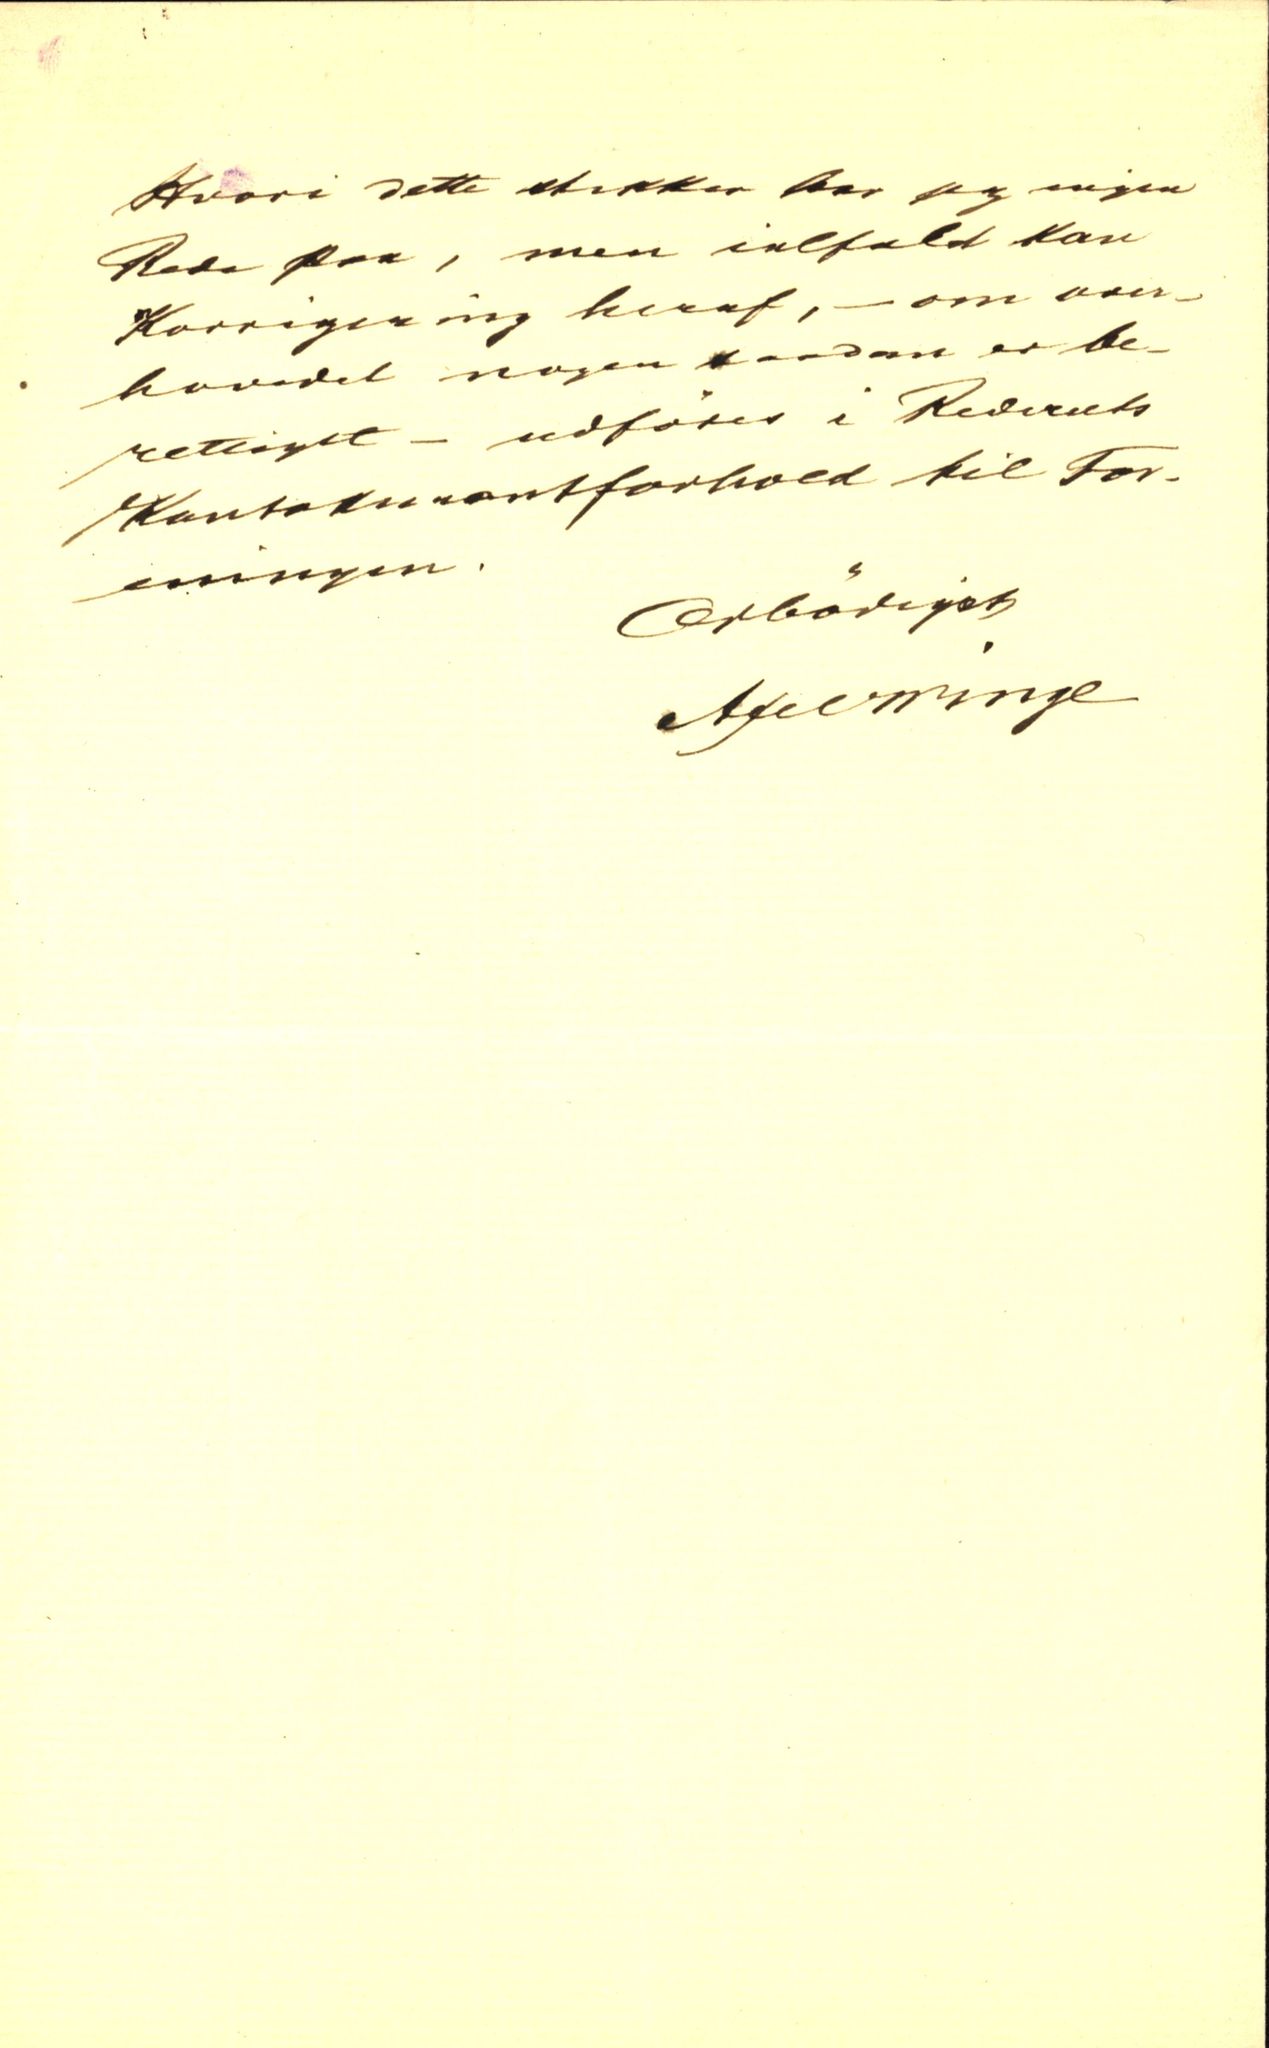 Hvori dette stikker har jeg ingen
Rede paa, men ialfald kan
Korrigering heraf, – om over-
hovedet nogen saadan er be-
rettiget – udføres i Rederiets
Kontokurantforhold til For-
eningen.
Ærbødigst
Axel Winge